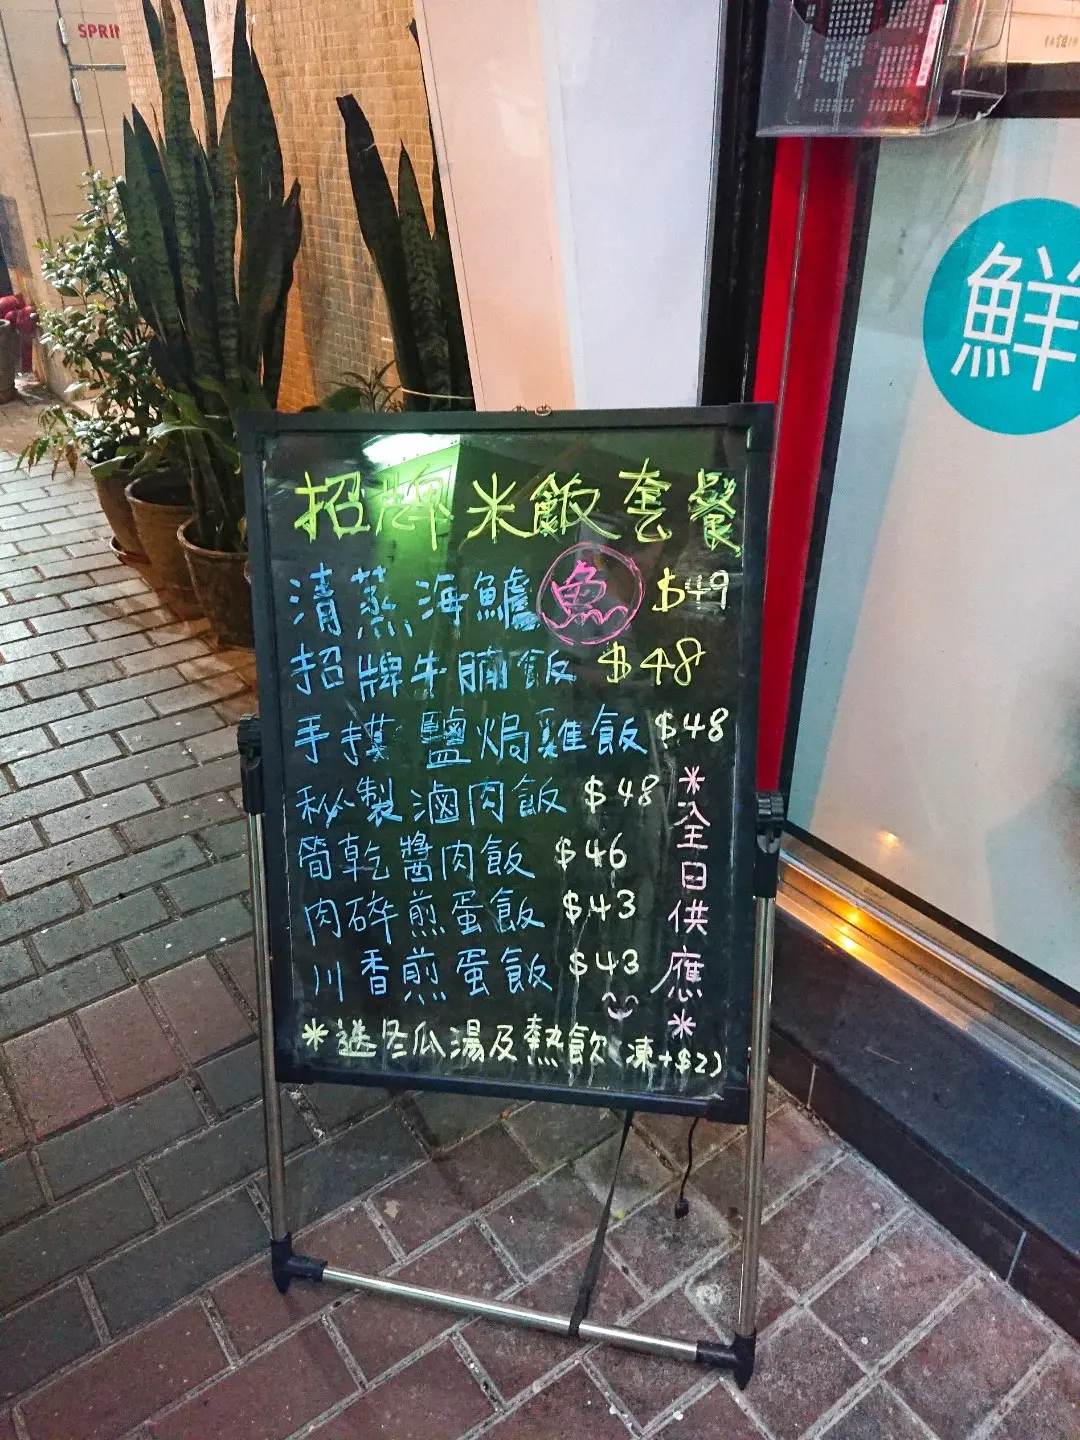 SPRIN
鮮
招牌米飯套餐
清蒸海鱸魚 $49
招牌牛腩飯 $48
手撕鹽焗雞飯 $48
秘製滷肉飯 $48
筍乾醬肉飯 $46
肉碎煎蛋飯 $43
川香煎蛋飯 $43
*全日供應*
*送冬瓜湯及熱飲(凍+$2)